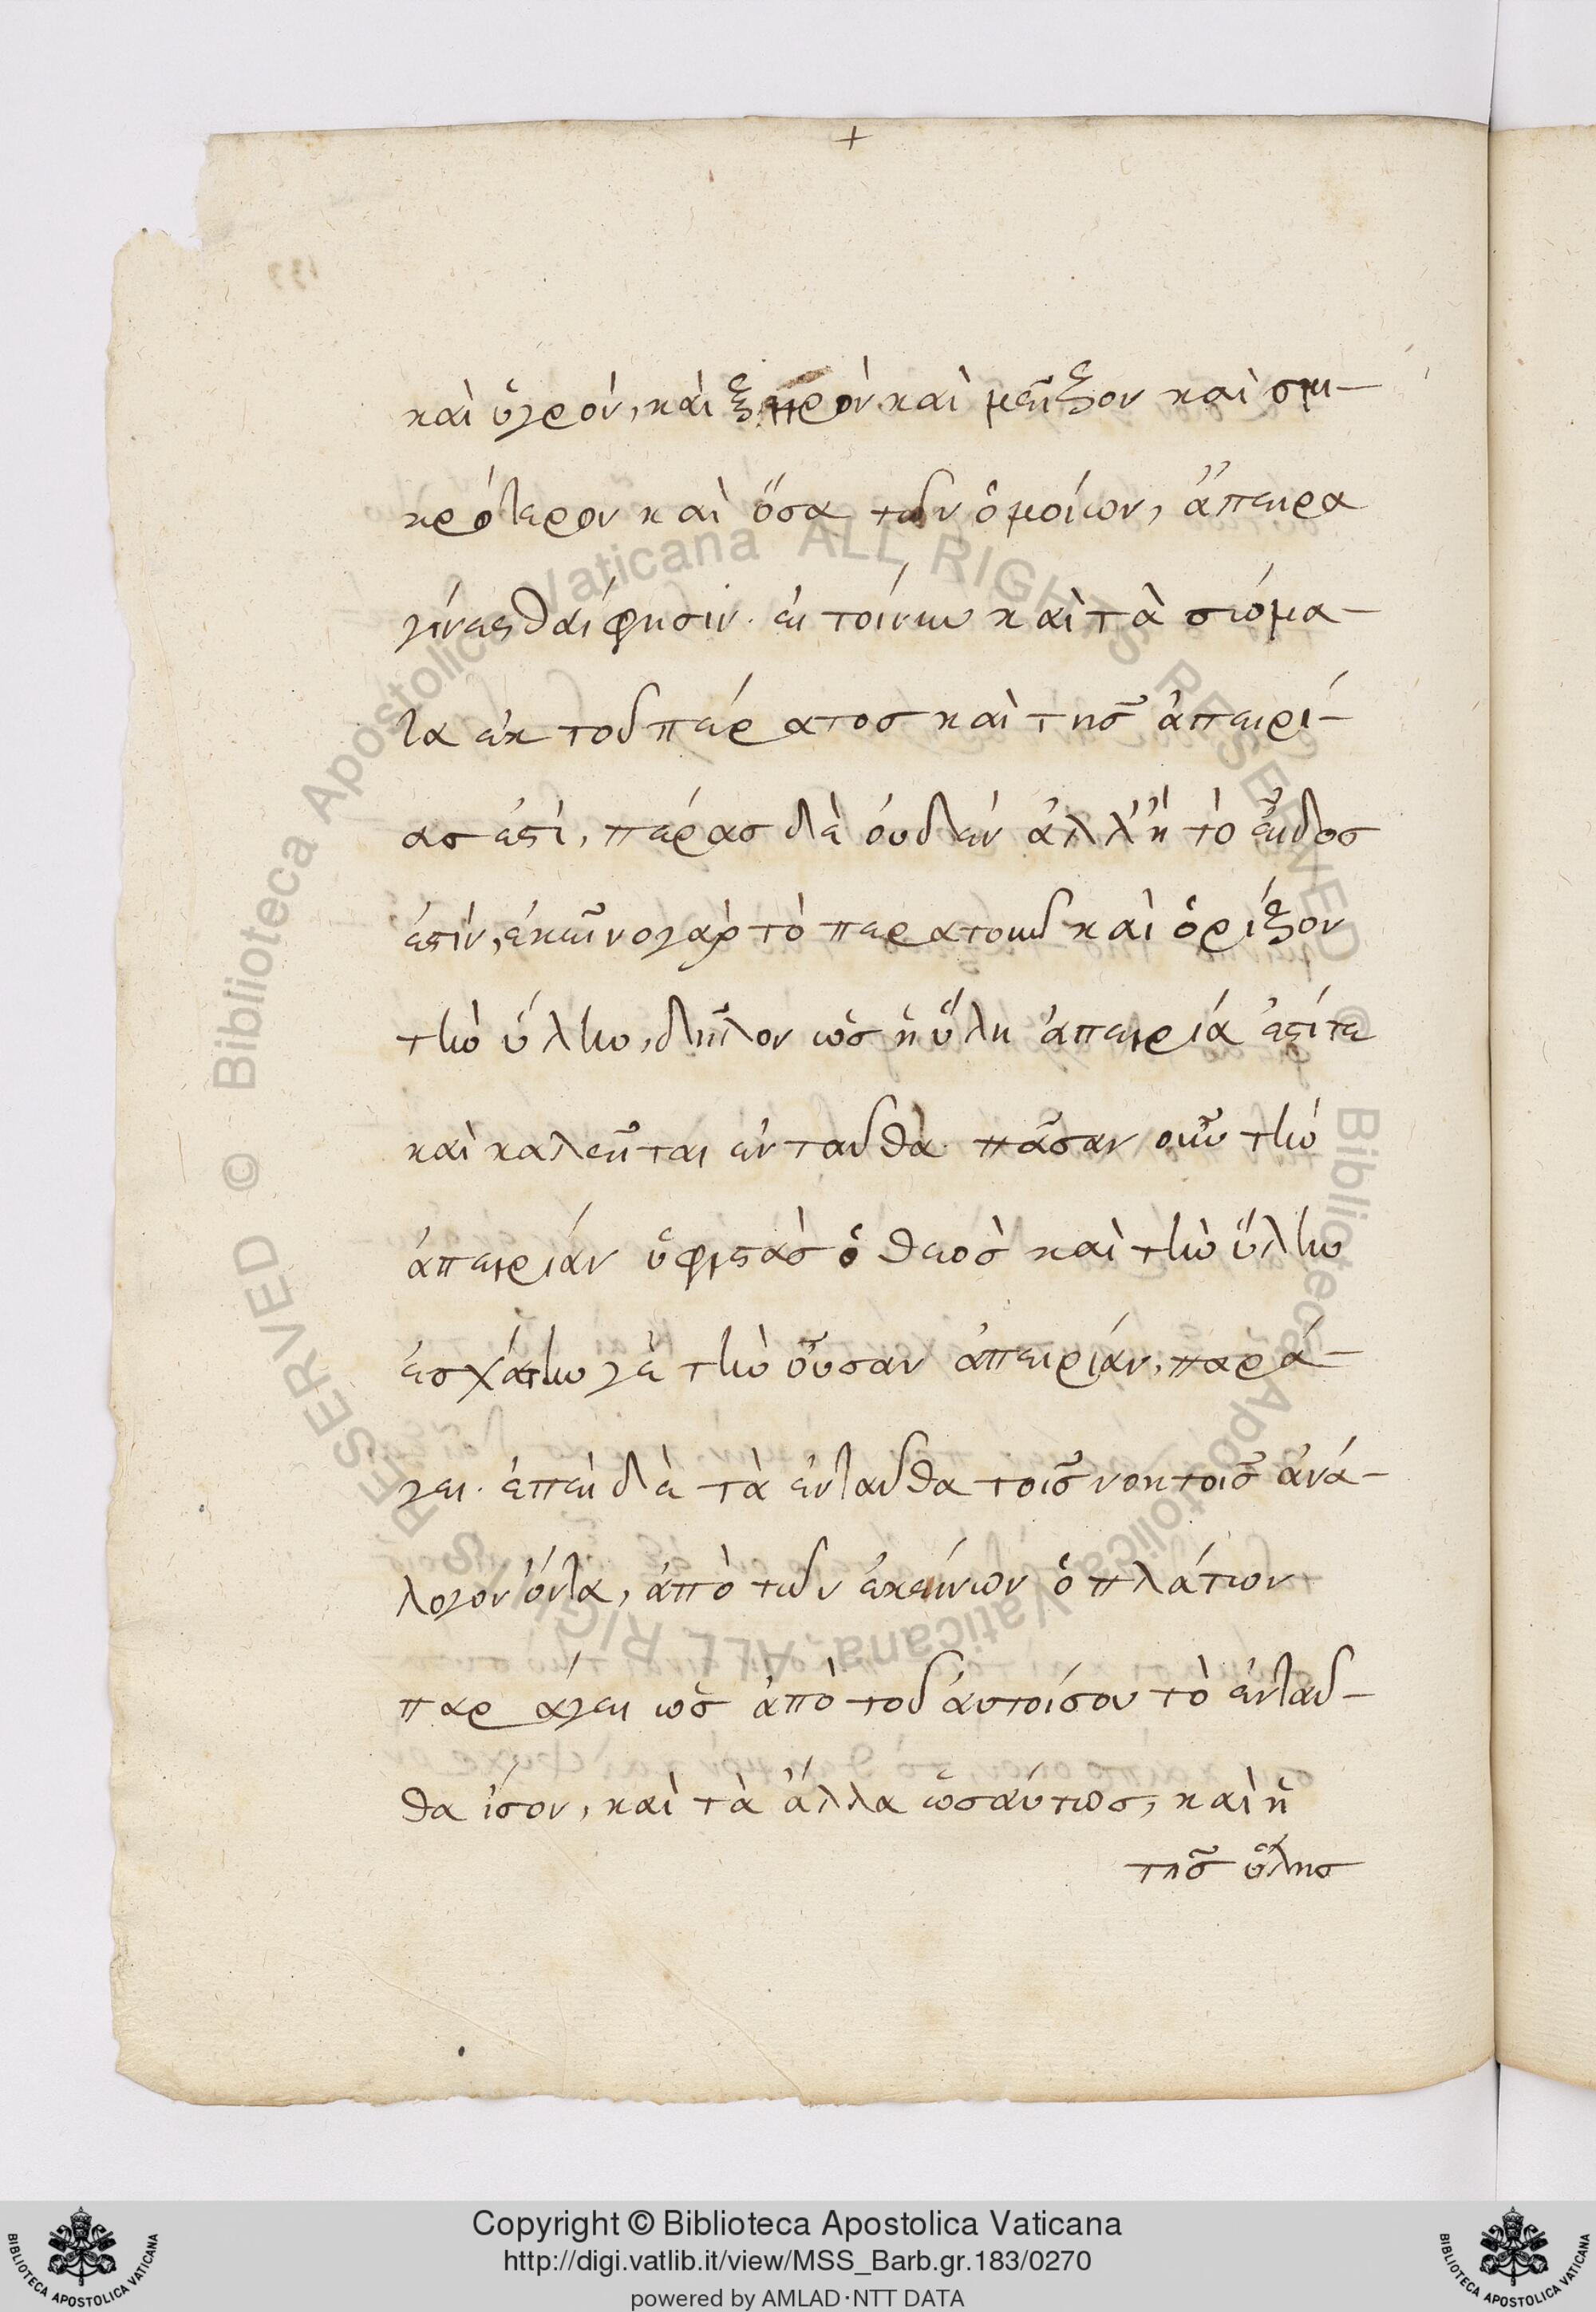 +
καὶ ὑγρόν, καὶ ξηρὸν καὶ μεῖζον καὶ σμι-
κρότερον καὶ ὅσα τῶν ὁμοίων, ἄπειρα
γίνεσθαί φησιν. εἰ τοίνυν καὶ τὰ σώμα-
τα ἐκ τοῦ πέρατος καὶ τῆς ἀπειρί-
ας ἐστὶ, πέρας δὲ οὐδὲν ἀλλ' ἢ τὸ εἶδος
ἐστίν, ἐκεῖνο γὰρ τὸ περατοῦν καὶ ὁρίζον
τὴν ὕλην, δῆλον ὡς ἡ ὕλη ἀπειρία ἐστί τε
καὶ καλεῖται ἐνταῦθα. πᾶσαν οὖν τὴν
ἀπειρίαν ὑφιστὰς ὁ θεὸς καὶ τὴν ὕλην
ἐσχάτην γὲ τὴν οὖσαν ἀπειρίαν, παρά-
γει. ἐπεὶ δὲ τὰ ἐνταῦθα τοῖς νοητοῖς ἀνά-
λογον ὄντα, ἀπὸ τῶν ἐκείνων ὁ πλάτων
παράγει ὡς ἀπὸ τοῦ αὐτοίσου τὸ ἐνταῦ-
θα ἴσον, καὶ τὰ ἄλλα ὡσαύτως, καὶ ἡ
τῆς ὕλης
Copyright © Biblioteca Apostolica Vaticana
http://digi.vatlib.it/view/MSS_Barb.gr.183/0270
powered by AMLAD·NTT DATA